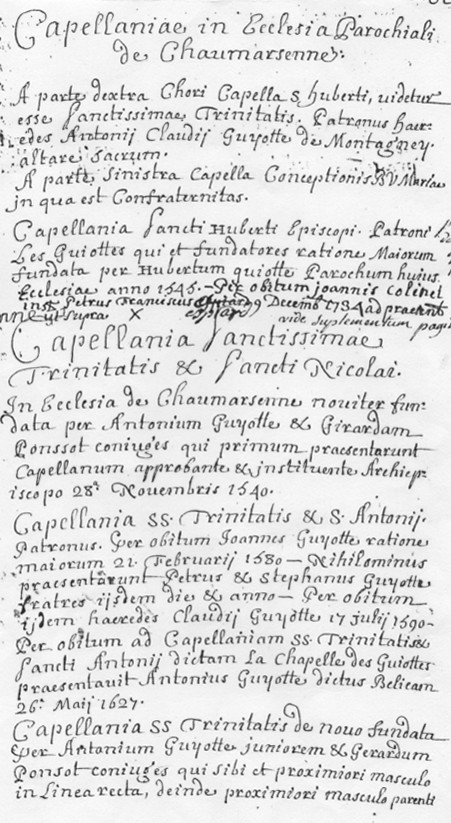 Capellaniae in Ecclesia Parochiali
de Chaumarsenne.
A parte dextra Chori Capella S Huberti, uidetur
esse Sanctissimae Trinitatis. Patronus haer-
edes Antonij Claudij Guyotte de Montagney.
altare sacrum.
A parte sinistra Capella Conceptionis B V Mariae
in qua est Confraternitas.
Capellania Sancti Huberti Episcopi. Patroni
Les Guiottes qui et fundatores ratione Maiorum
fundata per Hubertum quiotte Parochum huius
Ecclesiae anno 1545. - Per obitum joannis Colinet
inst. Petrus Franciscus 9 Decemb 1734 ad praesent
ut supra X vide suplementum pagi
Capellania Sanctissimae
Trinitatis & Sancti Nicolai.
In Ecclesia de Chaumarsenne nouiter fun-
data per Antonium Guyotte & Girardam
Ponssot coniuges qui primum praesentarunt
Capellanum approbante & instituente Archiep-
iscopo 28a Nouembris 1540.
Capellania SS. Trinitatis & S. Antonij.
Patronus. Per obitum Joannes Guyotte ratione
maiorum 21. Februarij 1580 - Nihilominus
praesentarunt Petrus & Stephanus Guyotte
fratres ijsdem die & anno - Per obitum
ijdem haeredes Claudij Guyotte 17 julij 1590-
Per obitum ad Capellaniam SS. Trinitatis &
Sancti Antonij dictam La Chapelle des Guiottes
praesentauit Antonius Guyotte dictus Belicam
26a Maij 1627.
Capellania SS Trinitatis de nouo fundata
per Antonium Guyotte juniorem & Gerardum
Ponsot coniuges qui sibi et proximiori masculo
in Linea recta, deinde proximiori masculo parenti